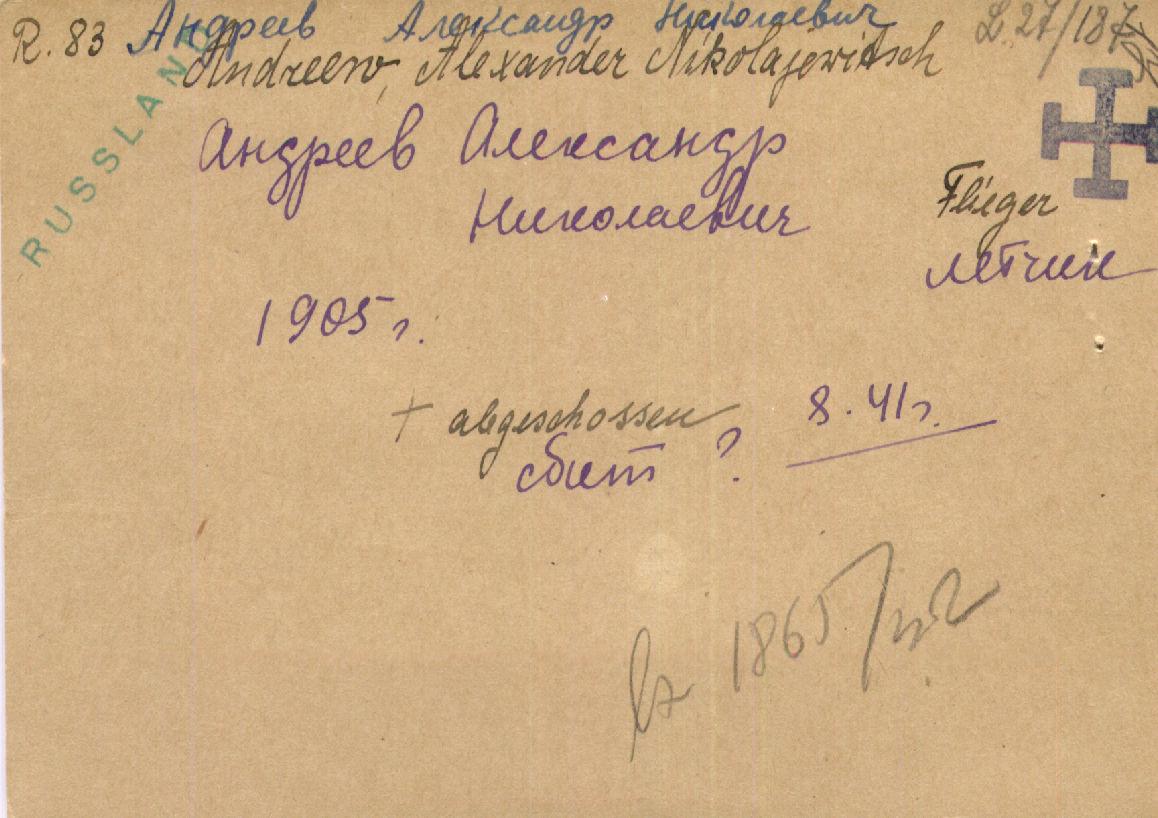 R. 83 Андреев Александр Николаевич L. 27/187
Andreew, Alexander Nikolajewitsch
RUSSLAND
Андреев Александр
Николаевич
Flieger
летчик
1905 г.
+ abgeschossen 8.41г.
сбит ?
1865